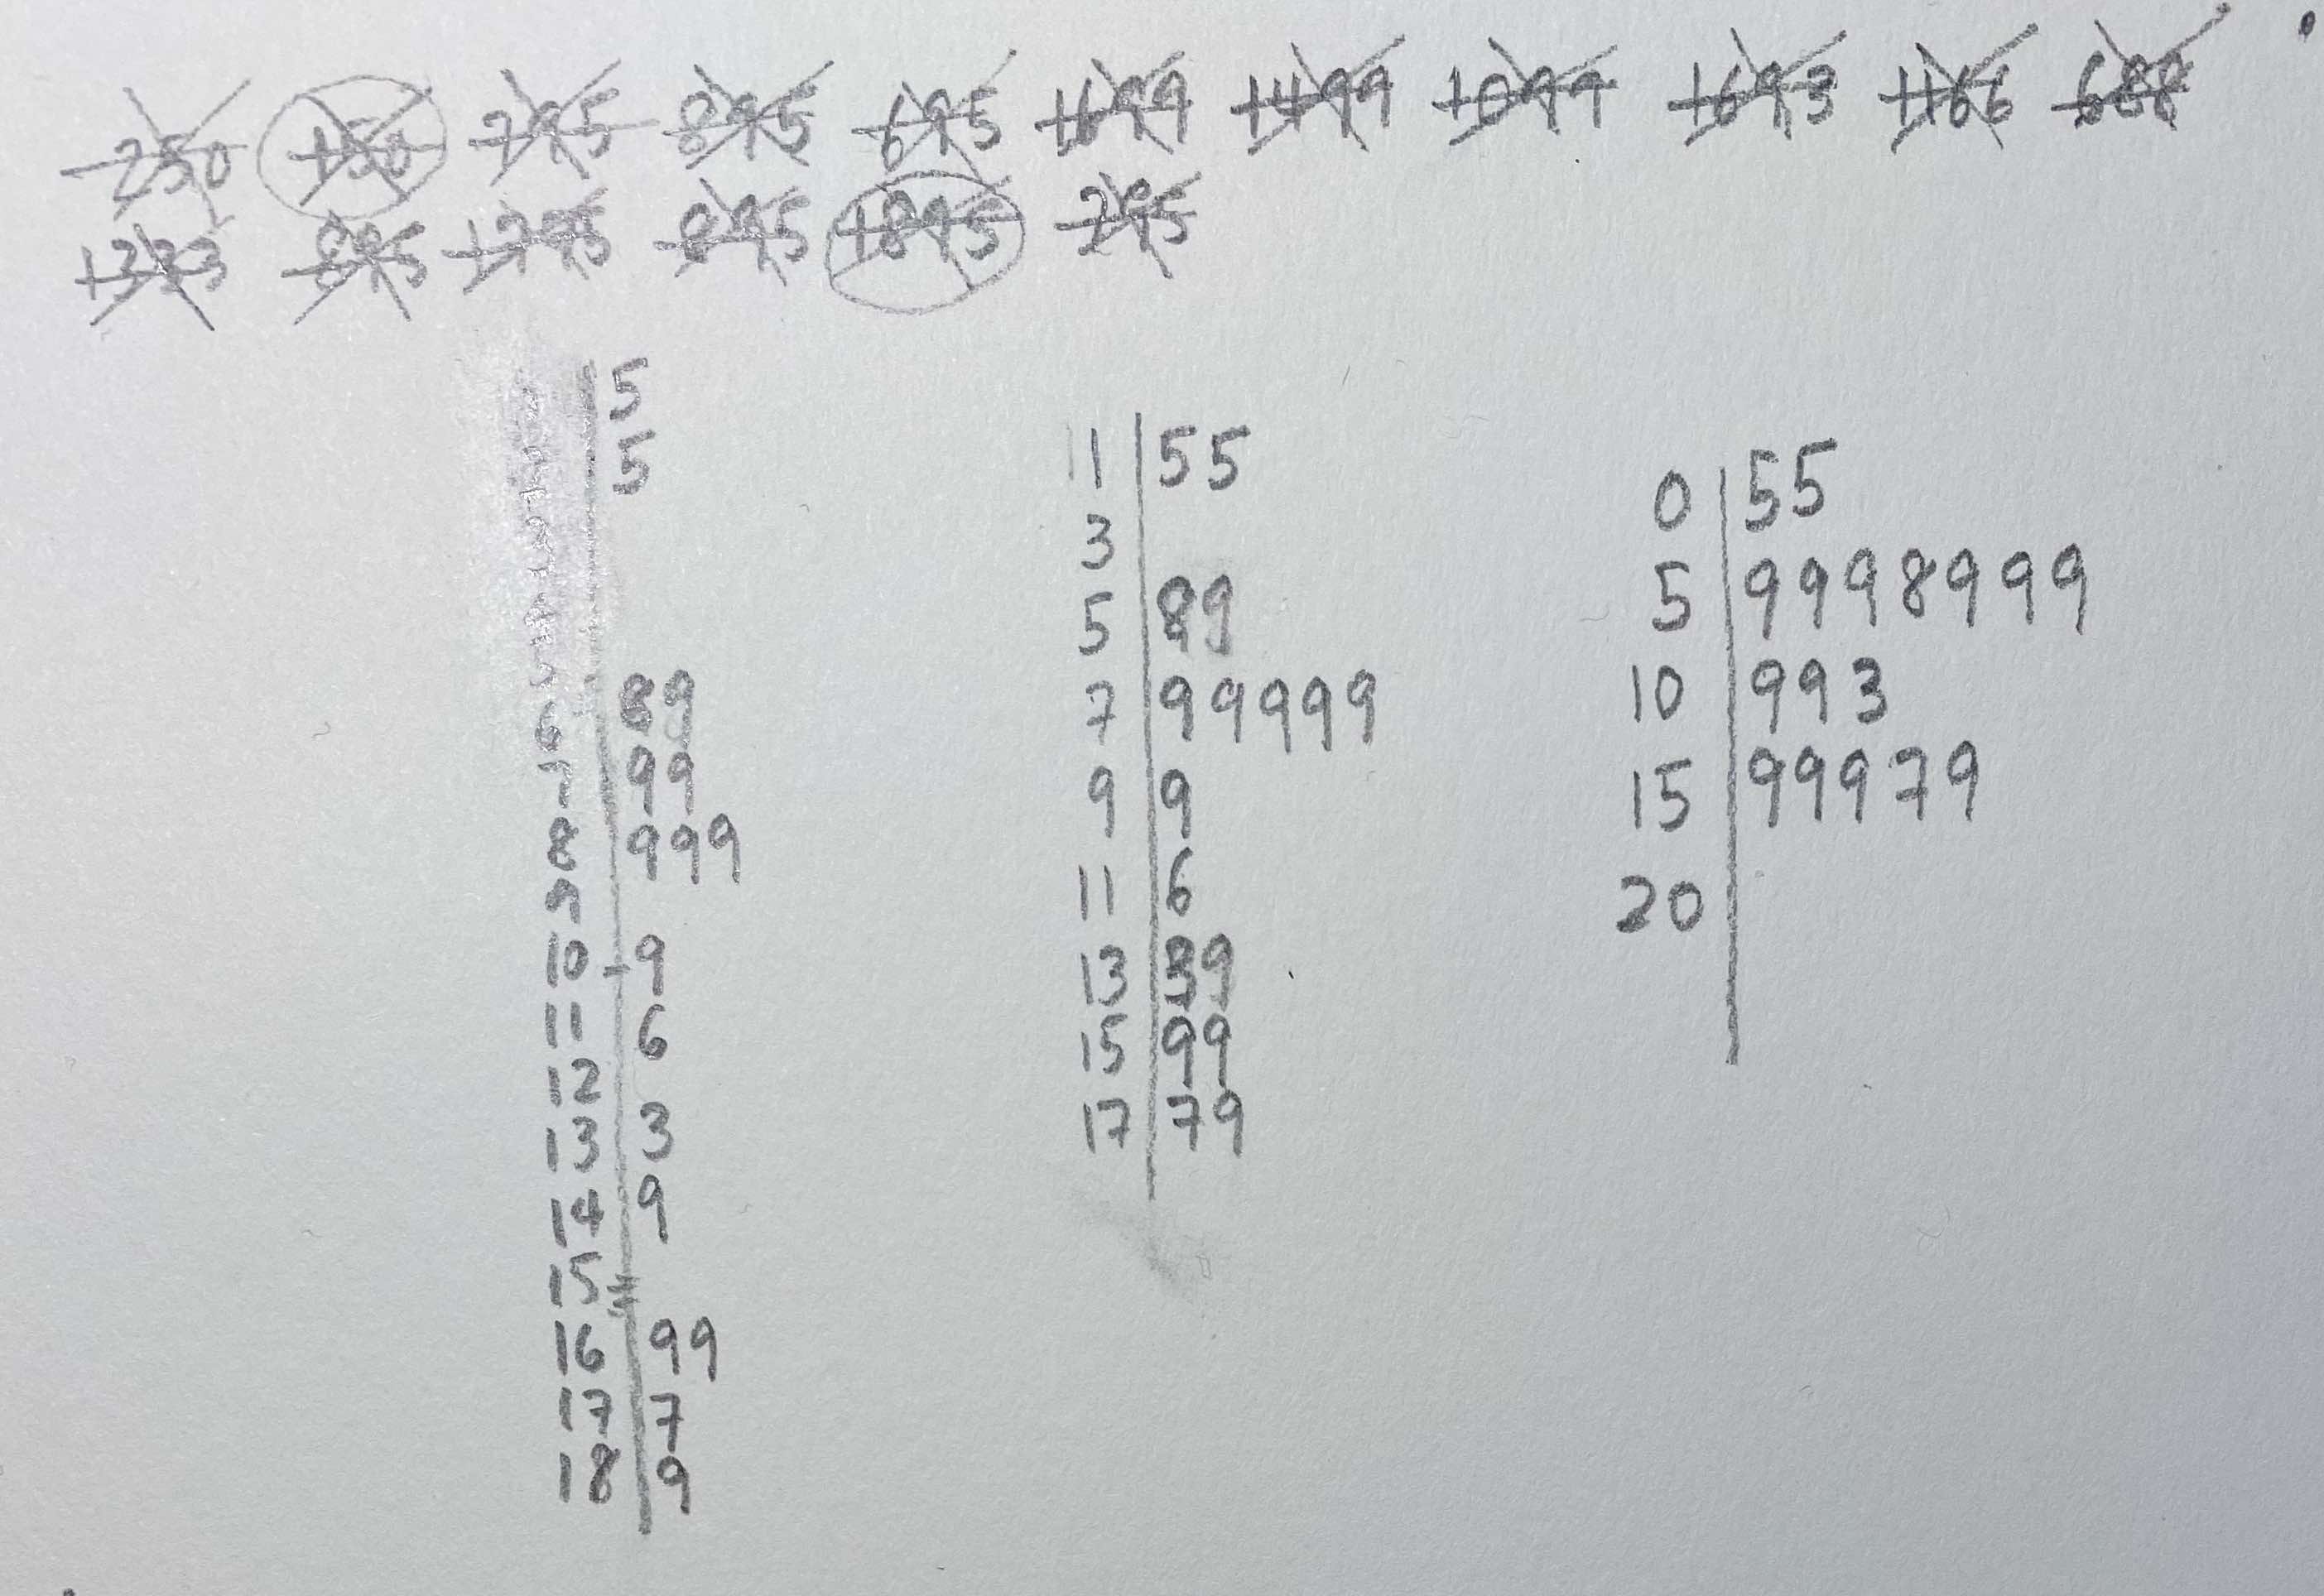 250 150 795 895 695 1699 1499 1099 1693 1166 688
1333 895 1795 895 1895 795
5
5
6 89
7 99
8 999
9
10 9
11 6
12
13 3
14 9
15
16 99
17 7
18 9
1 55
3
5 89
7 99999
9 9
11 6
13 39
15 99
17 79
0 55
5 9998999
10 993
15 99979
20